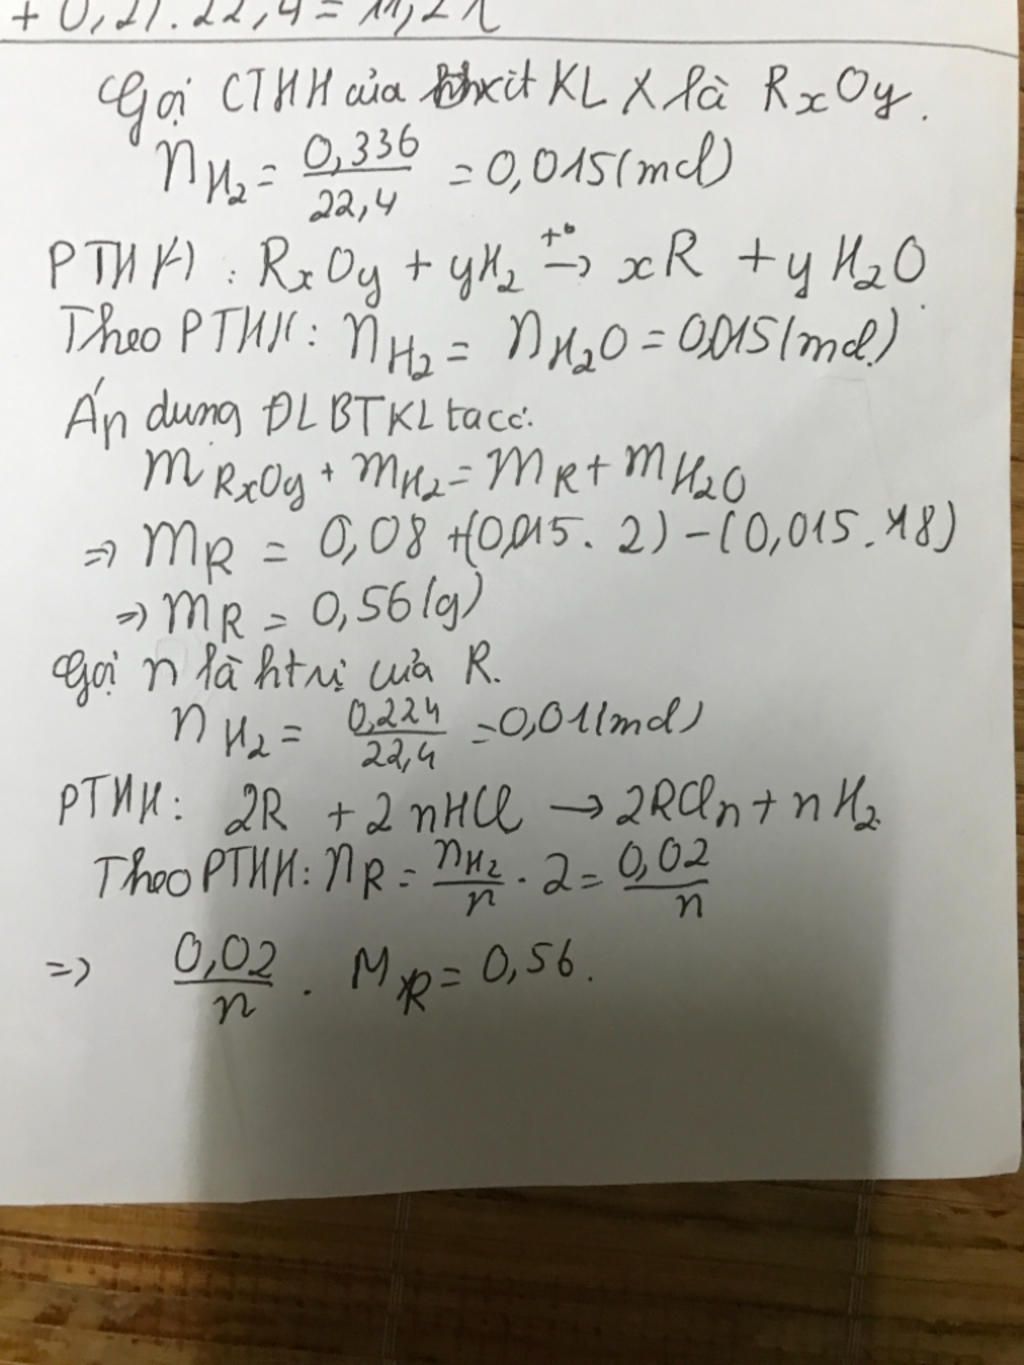 + 0,2).22,4 = 11,2 l
Gọi CTHH của oxit KL X là RxOy.
nH2 = 0,336/22,4 = 0,015 (mol)
PTHH : RxOy + yH2 →(t°) xR + yH2O
Theo PTHH: nH2 = nH2O = 0,015 (mol)
Áp dụng ĐLBTKL ta có:
mRxOy + mH2 = mR + mH2O
=> mR = 0,08 + (0,015 . 2) - (0,015 . 18)
=> mR = 0,56 (g)
Gọi n là htrị của R.
nH2 = 0,224/22,4 = 0,01 (mol)
PTHH: 2R + 2nHCl → 2RCln + nH2
Theo PTHH: nR = nH2/n . 2 = 0,02/n
=> 0,02/n . MR = 0,56.